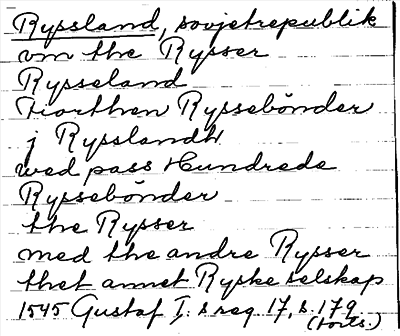 Ryssland, sovjetrepublik
om the Rysser
Rysseland
Tiorthen Ryssebönder
j Rysslandh
wed pass Hundrede
Ryssebönder
the Rysser
med the andre Rysser
thet annet Ryske selskap
1545 Gustaf I:s reg 17, s. 179
(forts.)